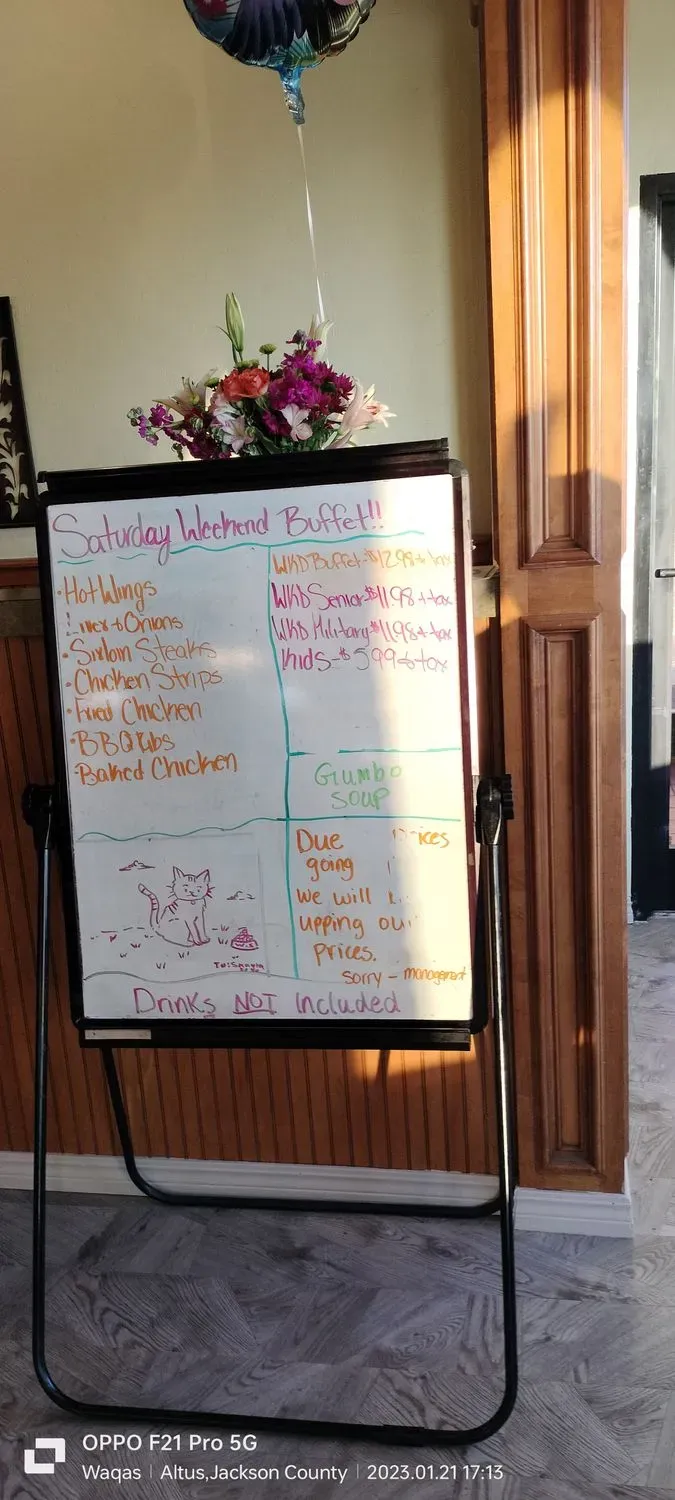 Saturday Weekend Buffet!!
• Hot Wings
Liver + Onions
• Sirloin Steaks
• Chicken Strips
• Fried Chicken
• BBQ ribs
• Baked Chicken
WKD Buffet-$12.99+tax
WKD Senior-$11.98+tax
WKD Military-$11.98+tax
Kids-$5.99+tax
Gumbo
Soup
Due
going
we will
upping our
prices.
sorry - management
Drinks NOT Included
OPPO F21 Pro 5G
Waqas | Altus,Jackson County | 2023.01.21 17:13